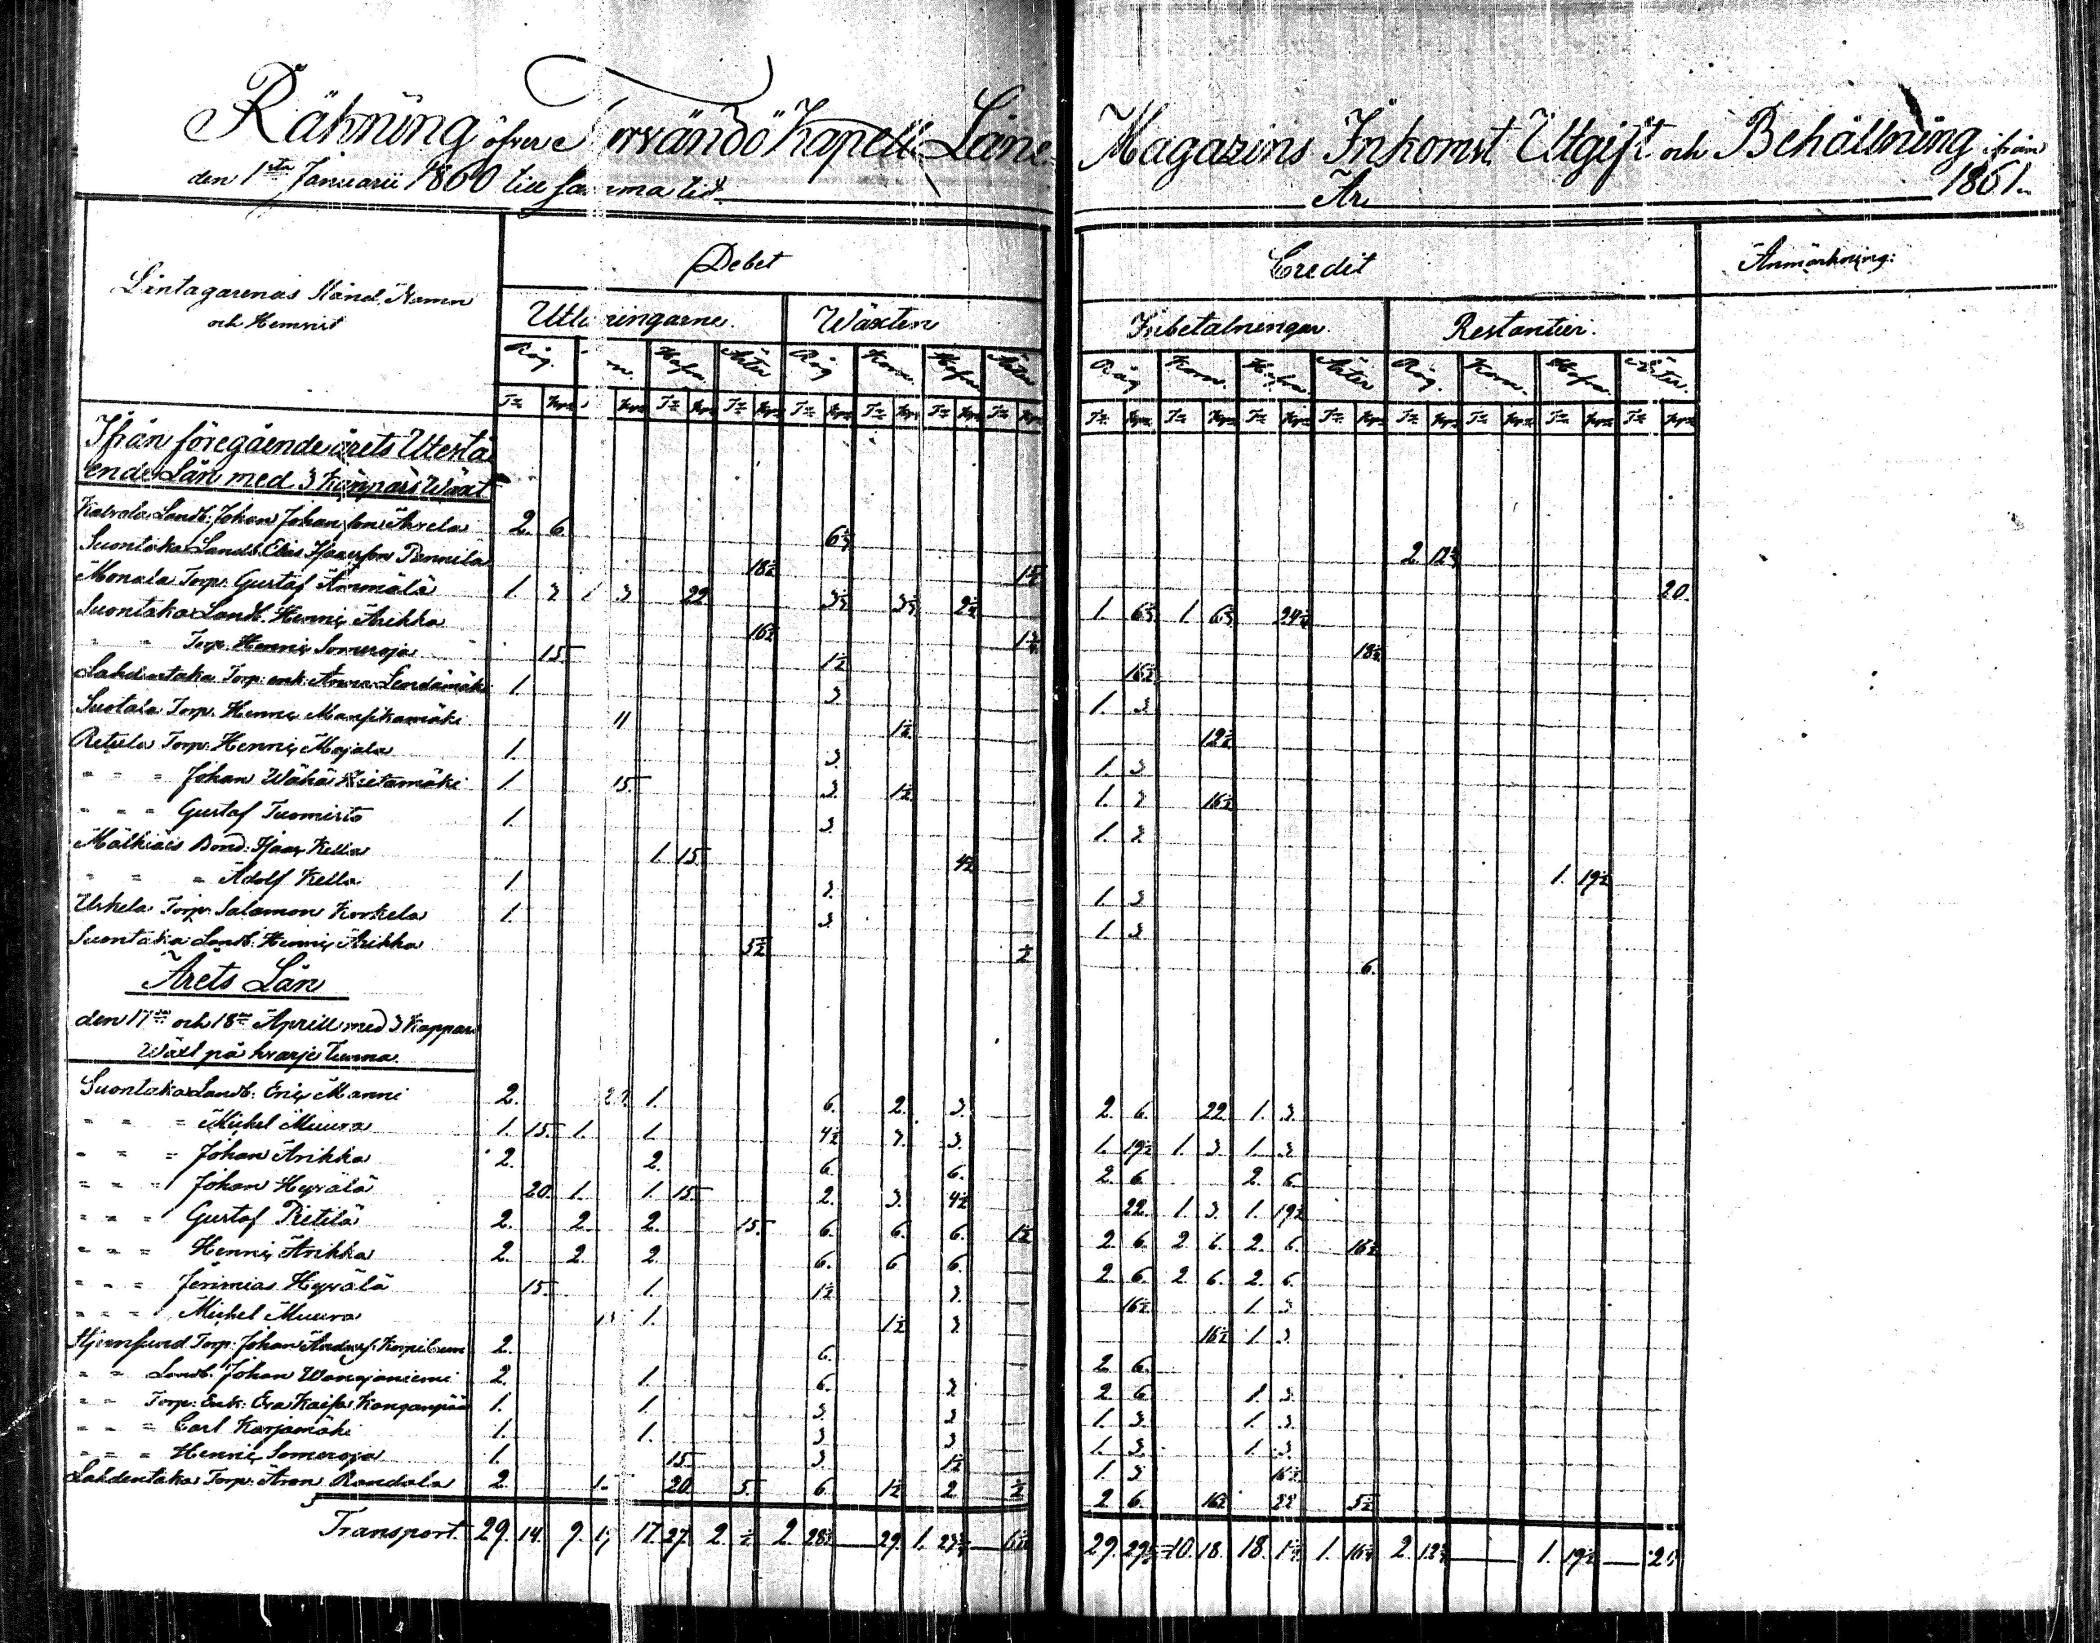 Räkning öfver Sorvändö Kapells Låne Magazins Inkomst, Utgift och Behållning ifrån
den 1sta Januarii 1860 till samma tid År 1861.
Låntagarenas Stånd, Namn och Hemvist
Debet
Credit
Anmärkning:
Utlåningarne. Wäxten Inbetalningar. Restantier.
Råg. Korn. Hafra. Ärter Råg Korn. Hafra. Ärter Råg Korn. Hafra. Ärter Råg. Korn. Hafra. Ärter.
Ifrån föregående årets Utestå
ende Lån med 3 Kappars Wäxt
Katvala Landb. Johan Johansson Arvela 2. 6 6¾ 2. 12¾
Suontaka Landb. Elias Isaacsson Pennila 18½ 1½ 20.
Monala Torp. Gustaf Ämmälä 1 3 1 3 22 3¾ 3¾ 2¼ 1. 6¾ 1 6¾ 24¼
Suontaka Landb. Henric Arikka 16½ 1¾ 18¼
" " Torp. Henric Someroja 15. 1½ 16½
Lahdentaka Torp. enk. Anna Lendämäki 1. 3 1. 3
Suotala Torp. Henric Mansikamäki 11 1½ 12½
Retula Torp. Henric Majala 1. 3. 1. 3
" " " Johan Wähä Rietamäki 1. 15. 3. 1½ 1. 3 16½
" " " Gustaf Tuomisto 1. 3. 1. 3
Mälkiäis Bond. Isaac Kella 1. 15. 4½ 1. 19½
" " " Adolf Kella 1. 3. 1. 3
Urkela Torp. Salamon Korkela 1. 3. 1. 3
Suontaka Landb. Henric Arikka 5½ ½ 6.
Årets Lån
den 17de och 18de Aprill med 3 Kappars
Wäxt på hvarje Tunna.
Suontaka Landb. Eric Manni 2. 20. 1. 6. 2. 3. 2. 6. 22. 1. 3.
" " " Michel Muura 1. 15. 1. 1. 4½ 3. 3. 1. 19½ 1. 3. 1. 3
" " " Johan Arikka 2. 2. 6. 6. 2. 6. 2. 6
" " " Johan Hyvälä 20. 1. 1. 15 2. 3. 4½ 22. 1. 3. 1. 19½
" " " Gustaf Pietilä 2. 2. 2. 15. 6. 6. 6. 1½ 2. 6. 2. 6. 2. 6. 16½
" " " Henric Arikka 2. 2. 2. 6. 6 6. 2. 6. 2. 6. 2. 6.
" " " Jerimias Hyvälä 15. 1. 1½ 3. 16½ 1. 3
" " " Michel Muura 15 1. 1½ 3 16½ 1. 3.
Stjernsund Torp. Johan Andersf. Korpilum 2. 6. 2. 6.
" " Landb. Johan Wanajaniemi 2. 1. 6. 3 2. 6 1. 3.
" " Torp. Enk. Eva Kaisa Kanganpää 1. 1. 3. 3 1. 3. 1. 3.
" " " Carl Karjamäki 1. 1. 3. 3. 1. 3. 1. 3
" " " Henric Someroja 1. 15 3. 1½ 1. 3 16½
Lahdentaka Torp. Aron Randala 2. 15 20. 5. 6. 1½ 2 ½ 2. 6. 16½ 22 5½
Transport. 29. 14. 9. 17 17. 27. 2. ½ 2. 28¾ 29. 1. 23¾ 29. 29½ 10. 18. 18. 1. 16¼ 2. 12¾ 1. 19½ 20